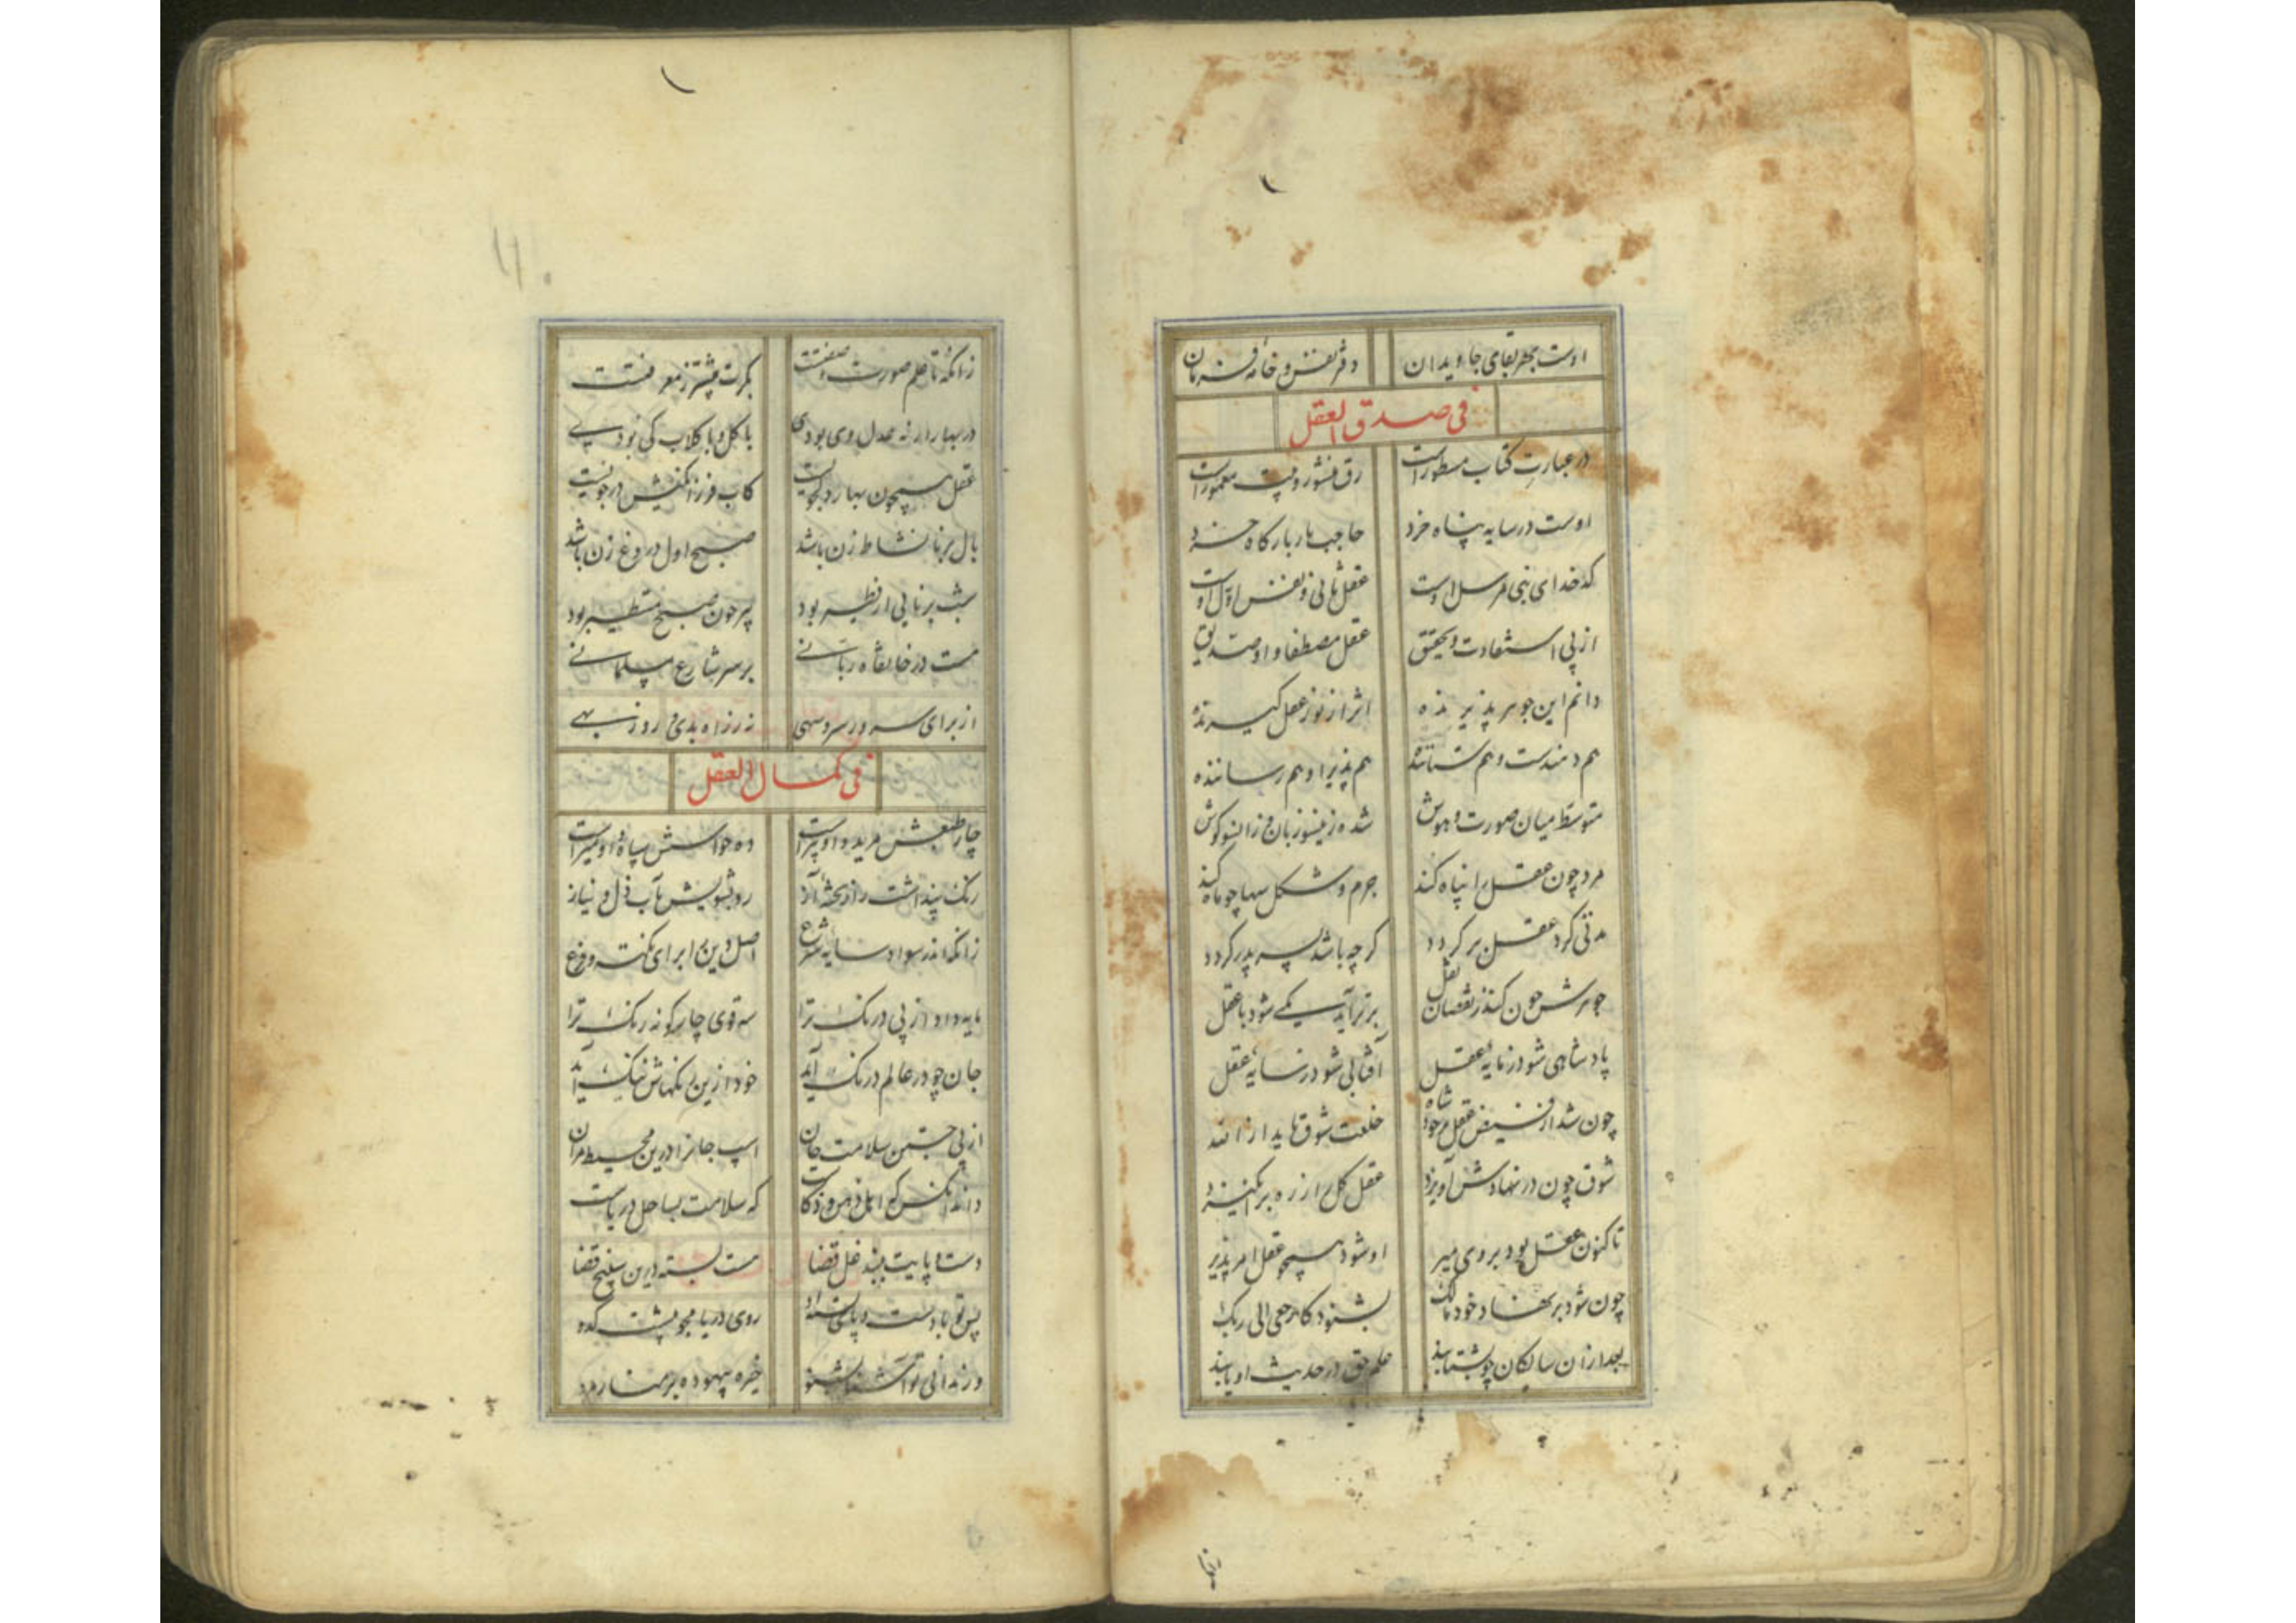 اوست بهر بقای جاویدان دفتر نفس و خانه فرمان
فی صدق العقل
در عبارت کتاب مسطور است رق منشور و بیت معمور است
اوست در سایه پناه خرد حاجب بار بارگاه خرد
کدخدای نبی مرسل اوست عقل ثانی و نفس اول اوست
از پی استفادت و تحقیق عقل مصطفا و او صدیق
دانم این جوهر پذیرنده اثر از نور عقل گیرنده
هم دهندست و هم ستاننده هم پذیرا و هم رساننده
متوسط میان صورت و هوش شده زینسو زبان و زانسو گوش
مرد چون عقل را پناه کند جرم و شکل سها چو ماه کند
مدتی گرد عقل بر گردد گرچه باشد پسر پدر گردد
جوهرش چون کند ز نقصان نقل برتر آید یکی شود با عقل
پادشاهی شود ز مایه عقل آفتابی شود ز سایه عقل
چون شد از فیض عقل مر خود شاه خلعت شوق یابد از الله
شوق چون در نهادش آویزد عقل کل را ز ره برانگیزد
تا کنون عقل بود بر وی میر او شود همچو عقل امر پذیر
چون شود بر نهاد خود مالک بشنود کارجعی الی ربک
بعد از آن سالکان چو بشتابند علم حق در حدیث او یابند
زانکه تا علم صورت و صفتت بکرت بیشتر ز معرفتت
در بهار ار نه عدل وی بودی با گل و با گلاب کی بودی
عقل همچون بهار دلجویست کاب فرزانگیش در جویست
بال برنا نشاط زن باشد صبح اول دروغ زن باشد
شب برنایی ار نظیر بود پیر چون صبح مستطیر بود
هست در خانقاه ربانی بر سر شارع مسلمانی
از برای سه ور سرو سهی
فی کمال العقل
چار طبعش مرید و او پیرست ده حواسش سپاه و او میرست
رنگ پنداشت را و تخته آز رو بشویش بآب ذل و نیاز
زانکه اندر سواد سایه شرع اصل دین را برای نکته و فرع
مایه داد از پی درنگ ترا سه قوی چار گونه رنگ ترا
جان چو در عالم درنگ آید خود ازین رنگهاش ننگ آید
از پی جستن سلامت جان اسب جانرا درین محیط مران
داند آنکس که اهل ذهن و ذکاست که سلامت بساحل دریاست
دست و پایت ببند غل قضا هست بسته درین سپنج قضا
پس تو با دست و پای روی دریا مجو
ور ندانی تو آشنا بشنو خیره بیهوده بر منار مدو
زانکه